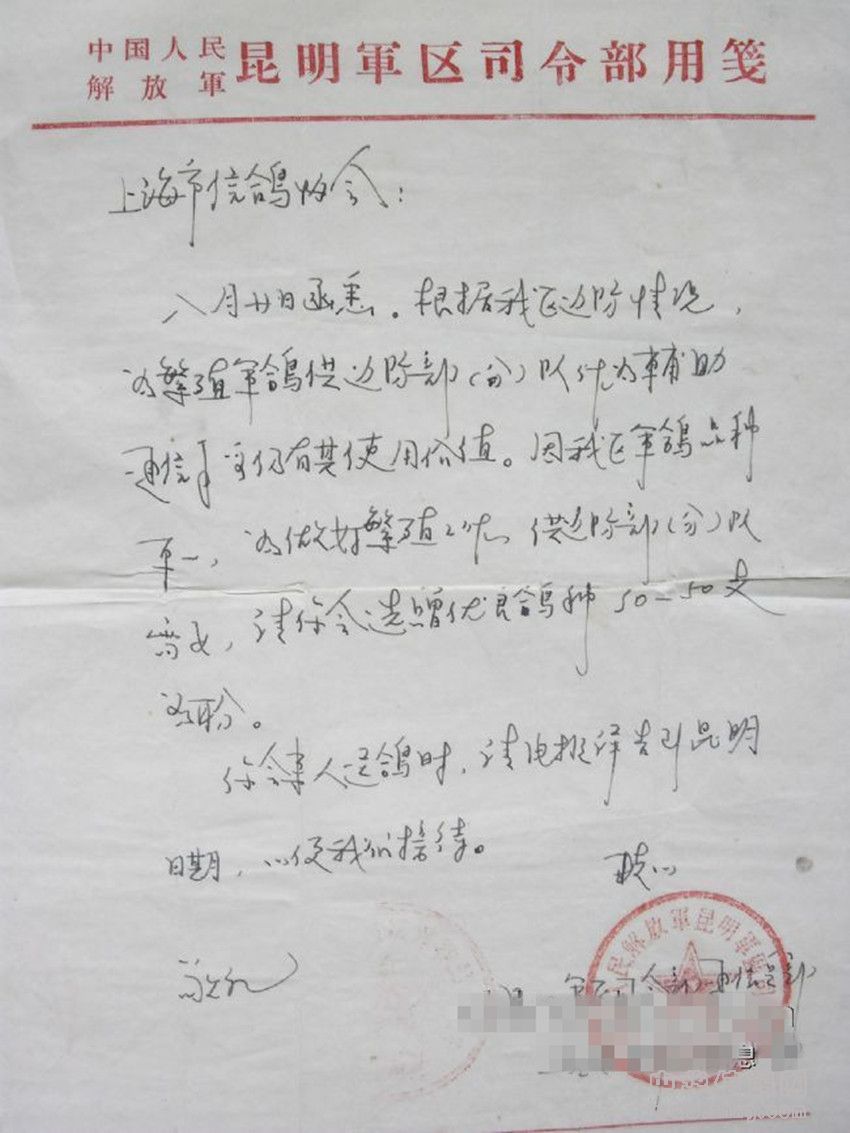 中国人民
解放軍 昆明軍区司令部用笺
上海市信鸽协会:
八月廿日函悉。根据我区边防情况,
为繁殖军鸽供边防部(分)队作为輔助
通信手段仍有其使用价值。因我区军鸽品种
单一,为做好繁殖工作,供边防部(分)队
需要,请你会选赠优良鸽种50—50支
为盼。
你会来人送鸽时,请电报详告到昆明
日期,以便我们接待。
致以
敬礼
军区司令部通信部
人民解放軍昆明軍區
息